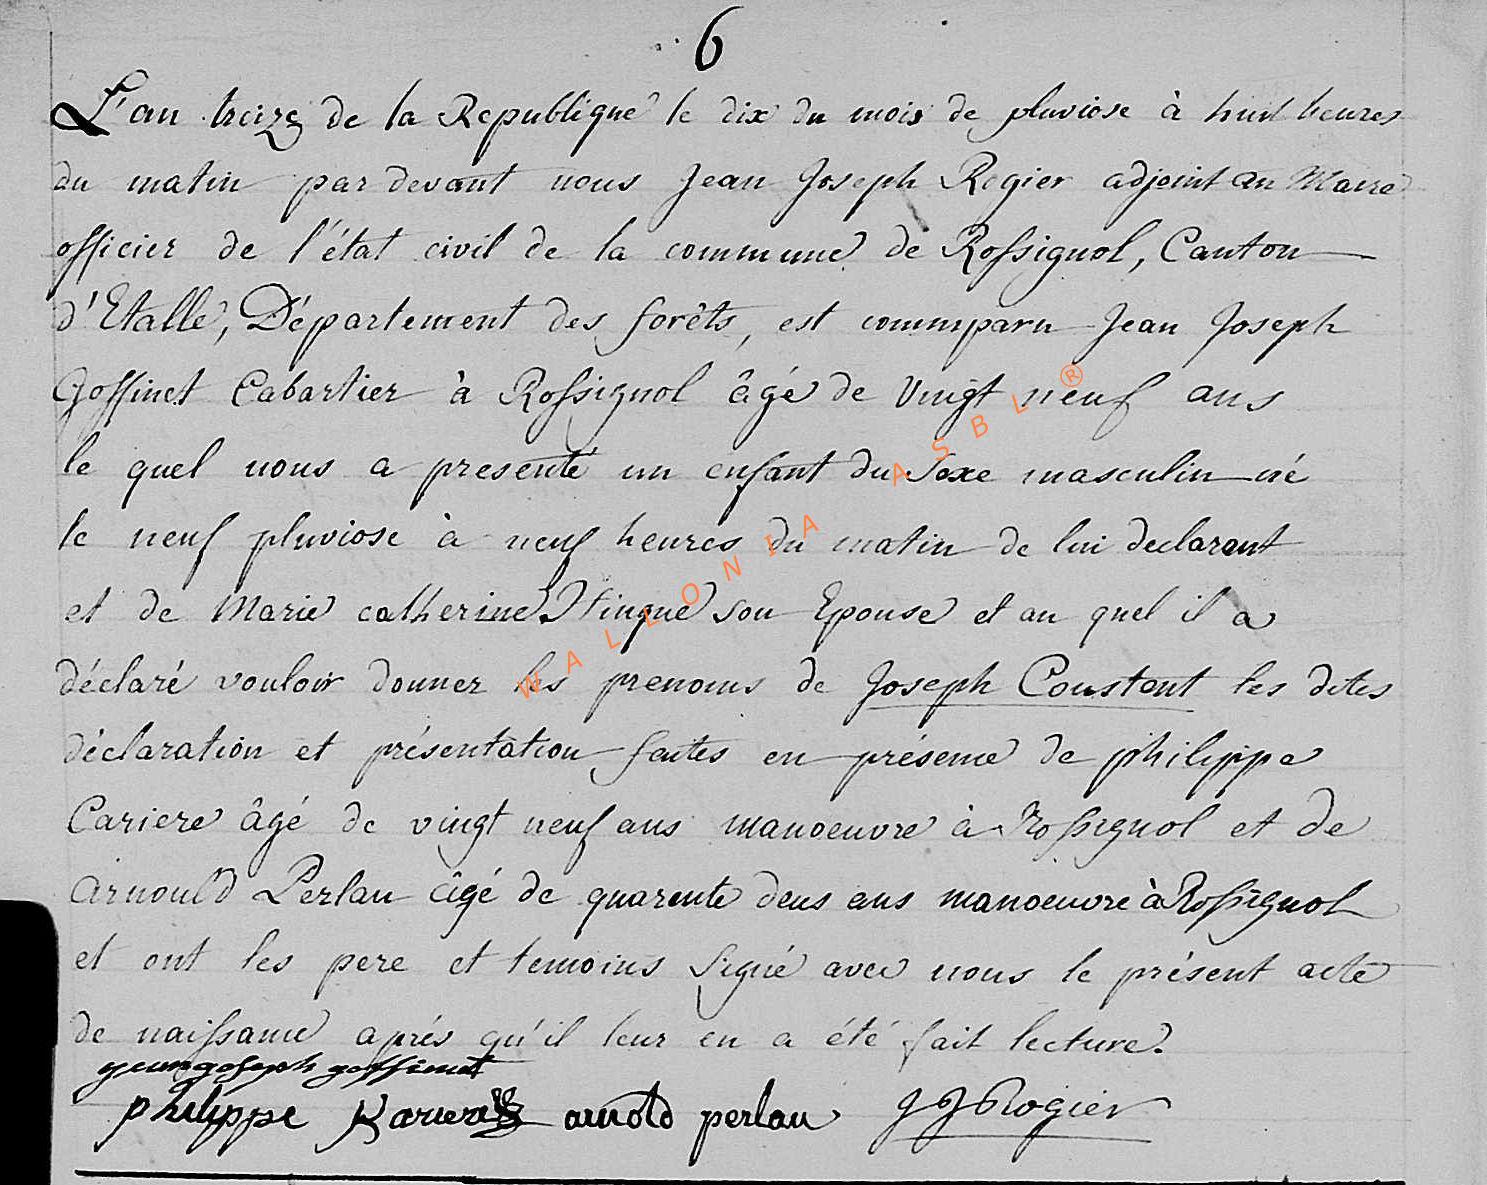 6
L'an treize de la Republique le dix du mois de pluviose à huit heures
du matin par devant nous Jean Joseph Rogier adjoint au Maire
officier de l'état civil de la commune de Rossignol, Canton
d'Etalle, Département des forêts, est commparu Jean Joseph
Goffinet Cabartier à Rossignol âgé de Vingt neuf ans
le quel nous a presenté un enfant du Sexe masculin né
le neuf pluviose à neuf heures du matin de lui declarant
et de Marie catherine son Epouse et au quel il a
déclaré vouloir donner les prenoms de Joseph Constant les dites
déclaration et présentation faites en présence de philippe
Cariere âgé de vingt neuf ans manoeuvre à Rossignol et de
Arnould Perlau âgé de quarente deus ans manoeuvre à Rossignol
et ont les pere et temoins signé avec nous le présent acte
de naissance aprés qu'il leur en a été fait lecture.
goffinet
philippe arnold perlau JJRogier
WALLONIA ASBL ®